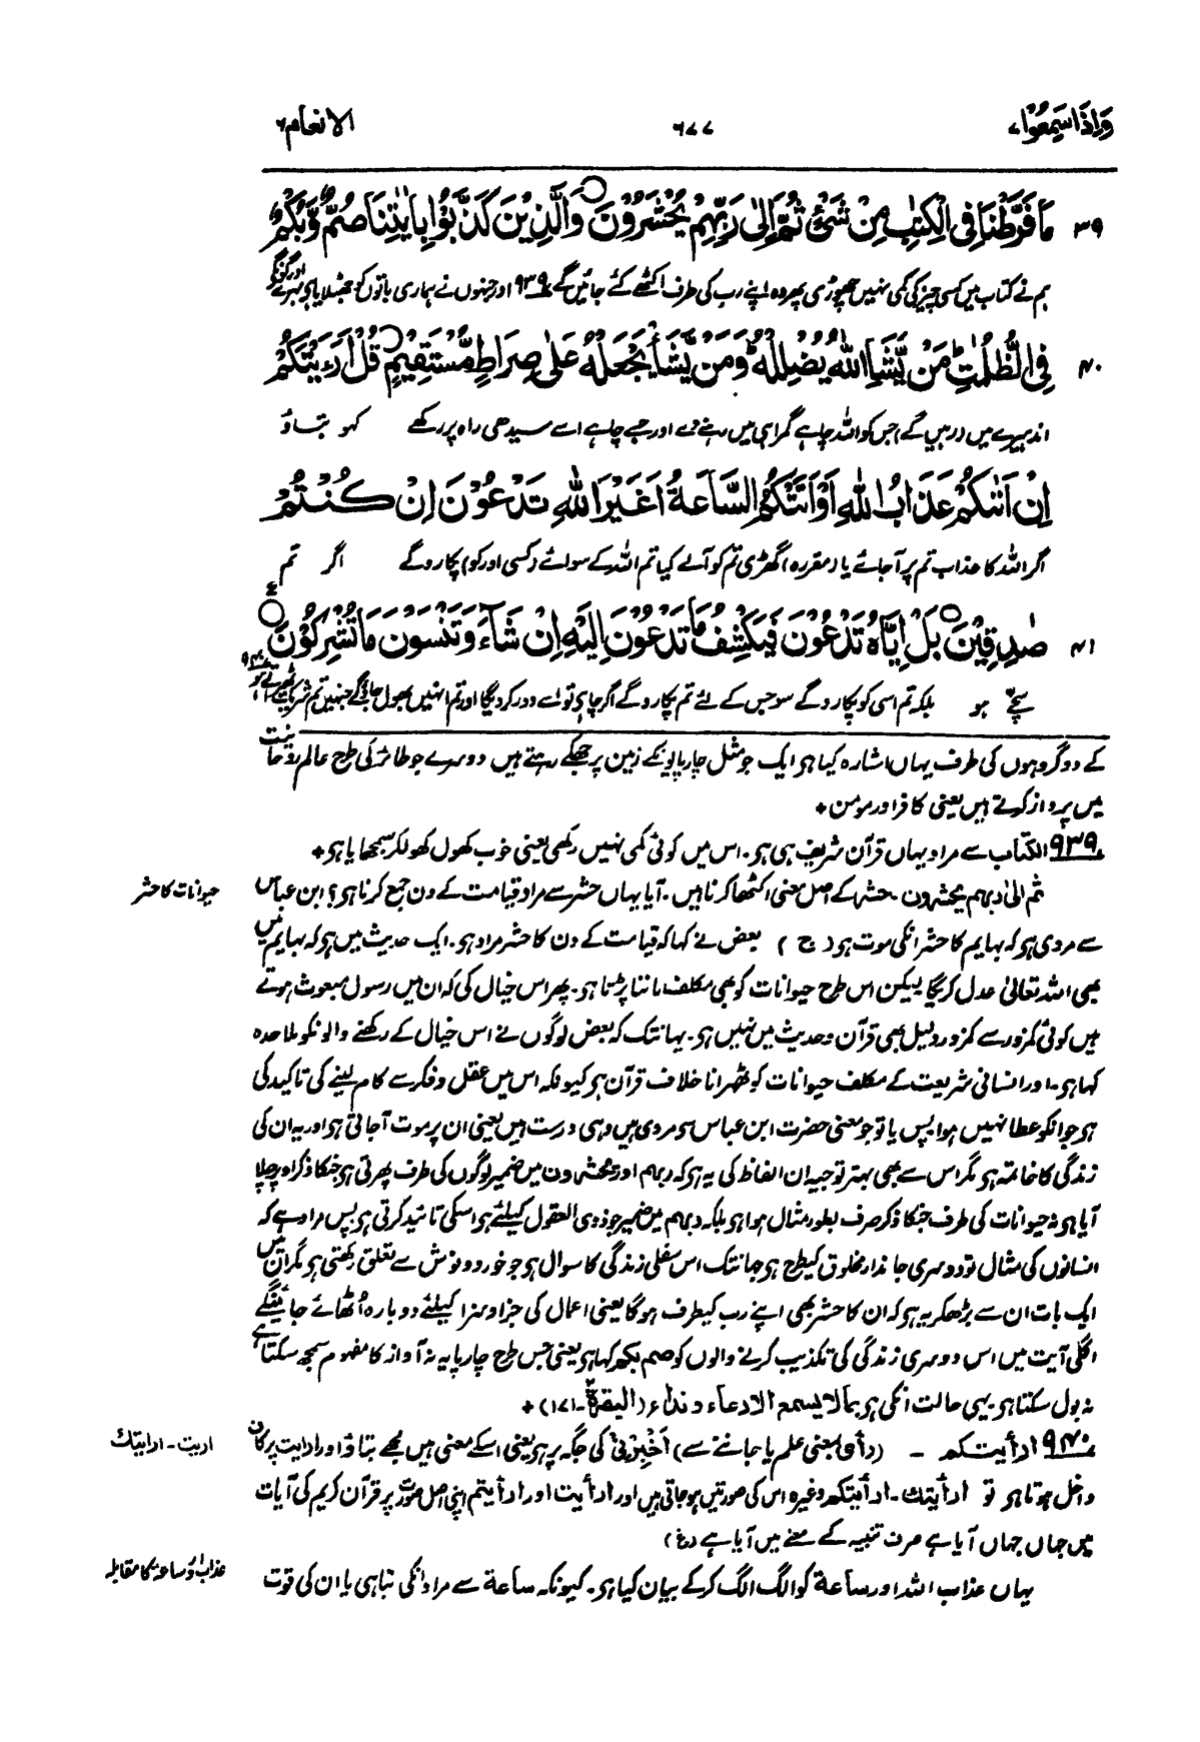 وَاِذَا سَمِعُوْا۷ ۶۷۷ الانعام۶
۳۹ مَا فَرَّطْنَا فِی الْكِتٰبِ مِنْ شَیْءٍ ثُمَّ اِلٰی رَبِّهِمْ یُحْشَرُوْنَ ○ وَالَّذِیْنَ كَذَّبُوْا بِاٰیٰتِنَا صُمٌّ وَّبُكْمٌ
ہم نے کتاب میں کسی چیز کی کمی نہیں چھوڑی پھر وہ اپنے رب کی طرف اکٹھے کئے جائیں گے ۹۳۹ اور جنہوں نے ہماری باتوں کو جھٹلایا بہرے اور گونگے
۴۰ فِی الظُّلُمٰتِ ؕ مَنْ یَّشَاِ اللّٰهُ یُضْلِلْهُ ؕ وَمَنْ یَّشَاْ یَجْعَلْهُ عَلٰی صِرَاطٍ مُّسْتَقِیْمٍ ○ قُلْ اَرَءَیْتَكُمْ
اندہیرے میں در ہیں گے) جس کو اللہ چاہے گمراہی میں رہنے دے اور جسے چاہے اسے سیدھی راہ پر رکھے کہو بتاؤ
اِنْ اَتٰىكُمْ عَذَابُ اللّٰهِ اَوْ اَتَتْكُمُ السَّاعَةُ اَغَیْرَ اللّٰهِ تَدْعُوْنَ اِنْ كُنْتُمْ
اگر اللہ کا عذاب تم پر آجائے یا (مقررہ) گھڑی تم کو آلے کیا تم اللہ کے سوائے (کسی اور کو) پکارو گے اگر تم
۴۱ صٰدِقِیْنَ ○ بَلْ اِیَّاهُ تَدْعُوْنَ فَیَكْشِفُ مَا تَدْعُوْنَ اِلَیْهِ اِنْ شَآءَ وَتَنْسَوْنَ مَا تُشْرِكُوْنَ ○ ع
سچے ہو بلکہ تم اسی کو پکارو گے سو جس کے لئے تم پکارو گے اگر چاہے تو اسے دور کر دیگا اور تم انہیں بھول جاؤگے جنہیں تم شریک ٹھیراتے ہو ۹۴۰
کے دو گروہوں کی طرف یہاں اشارہ کیا ہو ایک جو مثل چارپایونکے زمین پر جھکے رہتے ہیں دوسرے جو طائر کی طرح عالم روحانیت
میں پرواز کرتے ہیں یعنی کافر اور مومن ٭
۹۳۹ الکتاب سے مراد یہاں قرآن شریف ہی ہو۔ اس میں کوئی کمی نہیں رکھی یعنی خوب کھول کھولکر سمجھایا ہو٭
ثم الی ربہم یحشرون۔ حشر کے اصل معنی اکٹھا کرنا ہیں۔ آیا یہاں حشر سے مراد قیامت کے دن جمع کرنا ہو؟ ابن عباس
حیوانات کا حشر
سے مروی ہو کہ بہایم کا حشر انکی موت ہو (ج) بعض نے کہا کہ قیامت کے دن کا حشر مراد ہو۔ ایک حدیث میں ہو کہ بہایم میں
بھی اللہ تعالیٰ عدل کریگا لیکن اس طرح حیوانات کو بھی مکلف ماننا پڑتا ہو۔ پھر اس خیال کی کہ ان میں رسول مبعوث ہوتے
ہیں کوئی کمزور سے کمزور دلیل بھی قرآن و حدیث میں نہیں ہو۔ یہانتک کہ بعض لوگوں نے اس خیال کے رکھنے والونکو ملاحدہ
کہا ہو۔ اور انسانی شریعت کے مکلف حیوانات کو ٹھرانا خلاف قرآن ہو کیونکہ اس میں عقل و فکر سے کام لینے کی تاکید کی
ہو جو انکو عطا نہیں ہوا پس یا تو جو معنی حضرت ابن عباس سے مروی ہیں وہی درست ہیں یعنی ان پر موت آجاتی ہو اور یہ ان کی
زندگی کا خاتمہ ہو مگر اس سے بھی بہتر توجیہ ان الفاظ کی یہ ہو کہ ربہم اور یحشرون میں ضمیر لوگوں کی طرف پھرتی ہو جنکا ذکر اوپر چلا
آیا ہو نہ حیوانات کی طرف جنکا ذکر صرف بطور مثال ہوا ہو بلکہ ربہم میں ضمیر جو ذوی العقول کیلئے ہو اسکی تائید کرتی ہو پس مراد ہے کہ
انسانوں کی مثال تو دوسری جاندار مخلوق کیطرح ہو جہانتک اس سفلی زندگی کا سوال ہو جو خور و نوش سے تعلق رکھتی ہو مگر ان میں
ایک بات ان سے بڑھکر یہ ہو کہ ان کا حشر بھی اپنے رب کیطرف ہوگا یعنی اعمال کی جزا و سزا کیلئے دوبارہ اُٹھائے جائینگے
اگلی آیت میں اس دوسری زندگی کی تکذیب کرنے والوں کو صم بکم کہا ہو یعنی جس طرح چارپایہ نہ آواز کا مفہوم سمجھ سکتا ہے
نہ بول سکتا ہو یہی حالت انکی ہو بما لا یسمع الا دعاء و نداء (البقرۃ۔۱۷۱) ٭
۹۴۰ ارأیتکم – (رأی بمعنی علم یا جاننے سے) اَخْبِرْنِیْ کی جگہ پر ہو یعنی اسکے معنی ہیں مجھے بتاؤ اور ارایت پر کاف
اریت۔ ارایتک
داخل ہوتا ہو تو ارأیتک۔ ارأیتکم وغیرہ اس کی صورتیں ہوجاتی ہیں اور ارأیت اور ارأیتم اپنی اصل صورت پر قرآن کریم کی آیات
میں جہاں جہاں آیا ہے صرف تنبیہ کے معنے میں آیا ہے (غ)
یہاں عذاب اللہ اور ساعۃ کو الگ الگ کرکے بیان کیا ہو۔ کیونکہ ساعۃ سے مراد انکی تباہی یا ان کی قوت
عذاب اور ساعۃ کا مقابلہ